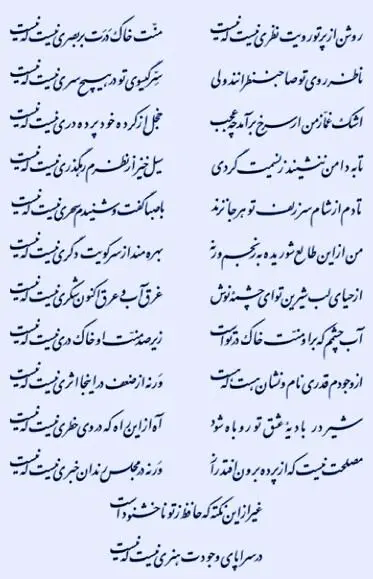 روشن از پرتو رویت نظری نیست که نیست منّت خاک درت بر بصری نیست که نیست
ناظر روی تو صاحبنظرانند ولی سرّ گیسوی تو در هیچ سری نیست که نیست
اشک غمّاز من ار سرخ برآمد چه عجیب خجل از کردهٔ خود پرده دری نیست که نیست
تا به دامن ننشیند ز نسیمت گردی سیل خیز از نظرم رهگذری نیست که نیست
تا دم از شام سر زلف تو هر جا نزند با صبا گفت و شنیدم سحری نیست که نیست
من از این طالع شوریده به رنجم ورنه بهره مند از سر کویت دگری نیست که نیست
از حیای لب شیرین تو ای چشمهٔ نوش غرق آب و عرق اکنون شکری نیست که نیست
آب چشمم که بر او منّت خاک در تو است زیر صد منّت او خاک دری نیست که نیست
از وجودم قدری نام و نشان هست که هست ور نه از ضعف در اینجا اثری نیست که نیست
شیر در بادیهٔ عشق تو روباه شود آه از این راه که در وی خطری نیست که نیست
مصلحت نیست که از پرده برون افتد راز ور نه در مجلس رندان خبری نیست که نیست
غیر از این نکته که حافظ ز تو ناخشنود است
در سراپای وجودت هنری نیست که نیست